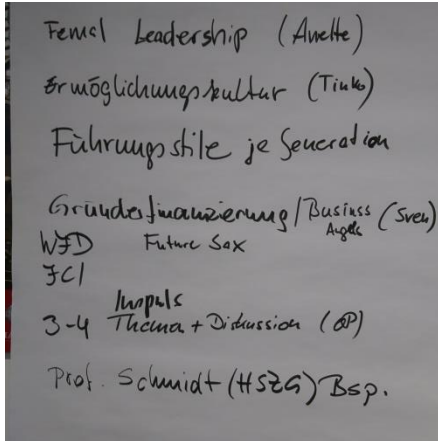 Femal Leadership (Anette)
Ermöglichungskultur (Tinko)
Führungsstile je Generation
Gründerfinanzierung / Businss Angels (Sven)
WJD Future Sax
JCI
Impuls
3-4 Thema + Diskussion (GP)
Prof. Schmidt (HSZG) Bsp.